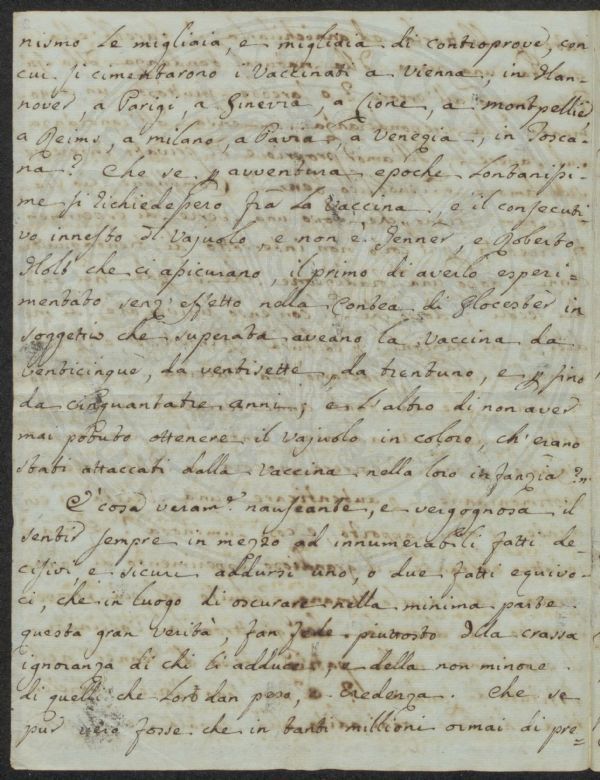 nismo le migliaia, e migliaia di controprove, con
cui si cimentarono i Vaccinati a Vienna, in Han-
nover, a Parigi, a Ginevra, a Lione, a Montpellier,
a Reims, a Milano, a Pavia, a Venezia, in Tosca-
na? Che se p avventura epoche lontanissi-
me si richiedessero frà la Vaccina, e il consecuti-
vo innesto di Vajuolo, e non è Jenner, e Roberto
Holt che ci assicurano, il primo di averlo esperi-
mentato senz'effetto nella Contea di Glocester in
soggetti che superata aveano la Vaccina da
venticinque, da ventisette, da trentuno, e p fino
da cinquantatre anni; e l'altro di non aver
mai potuto ottenere il Vajuolo in coloro, ch'erano
stati attaccati dalla Vaccina nella loro infanzia?"
E' cosa veram.e nauseante, e vergognosa il
sentir sempre in mezzo ad innumerabili fatti de-
cisivi, e sicuri addursi uno, o due fatti equivo-
ci, che in luogo di oscurare nella minima parte
questa gran verità, fan fede piuttosto della crassa
ignoranza di chi li adduce, e della non minore
di quelli che loro dan peso, e credenza. Che se
pur vero fosse che in tanti millioni ormai di pre=